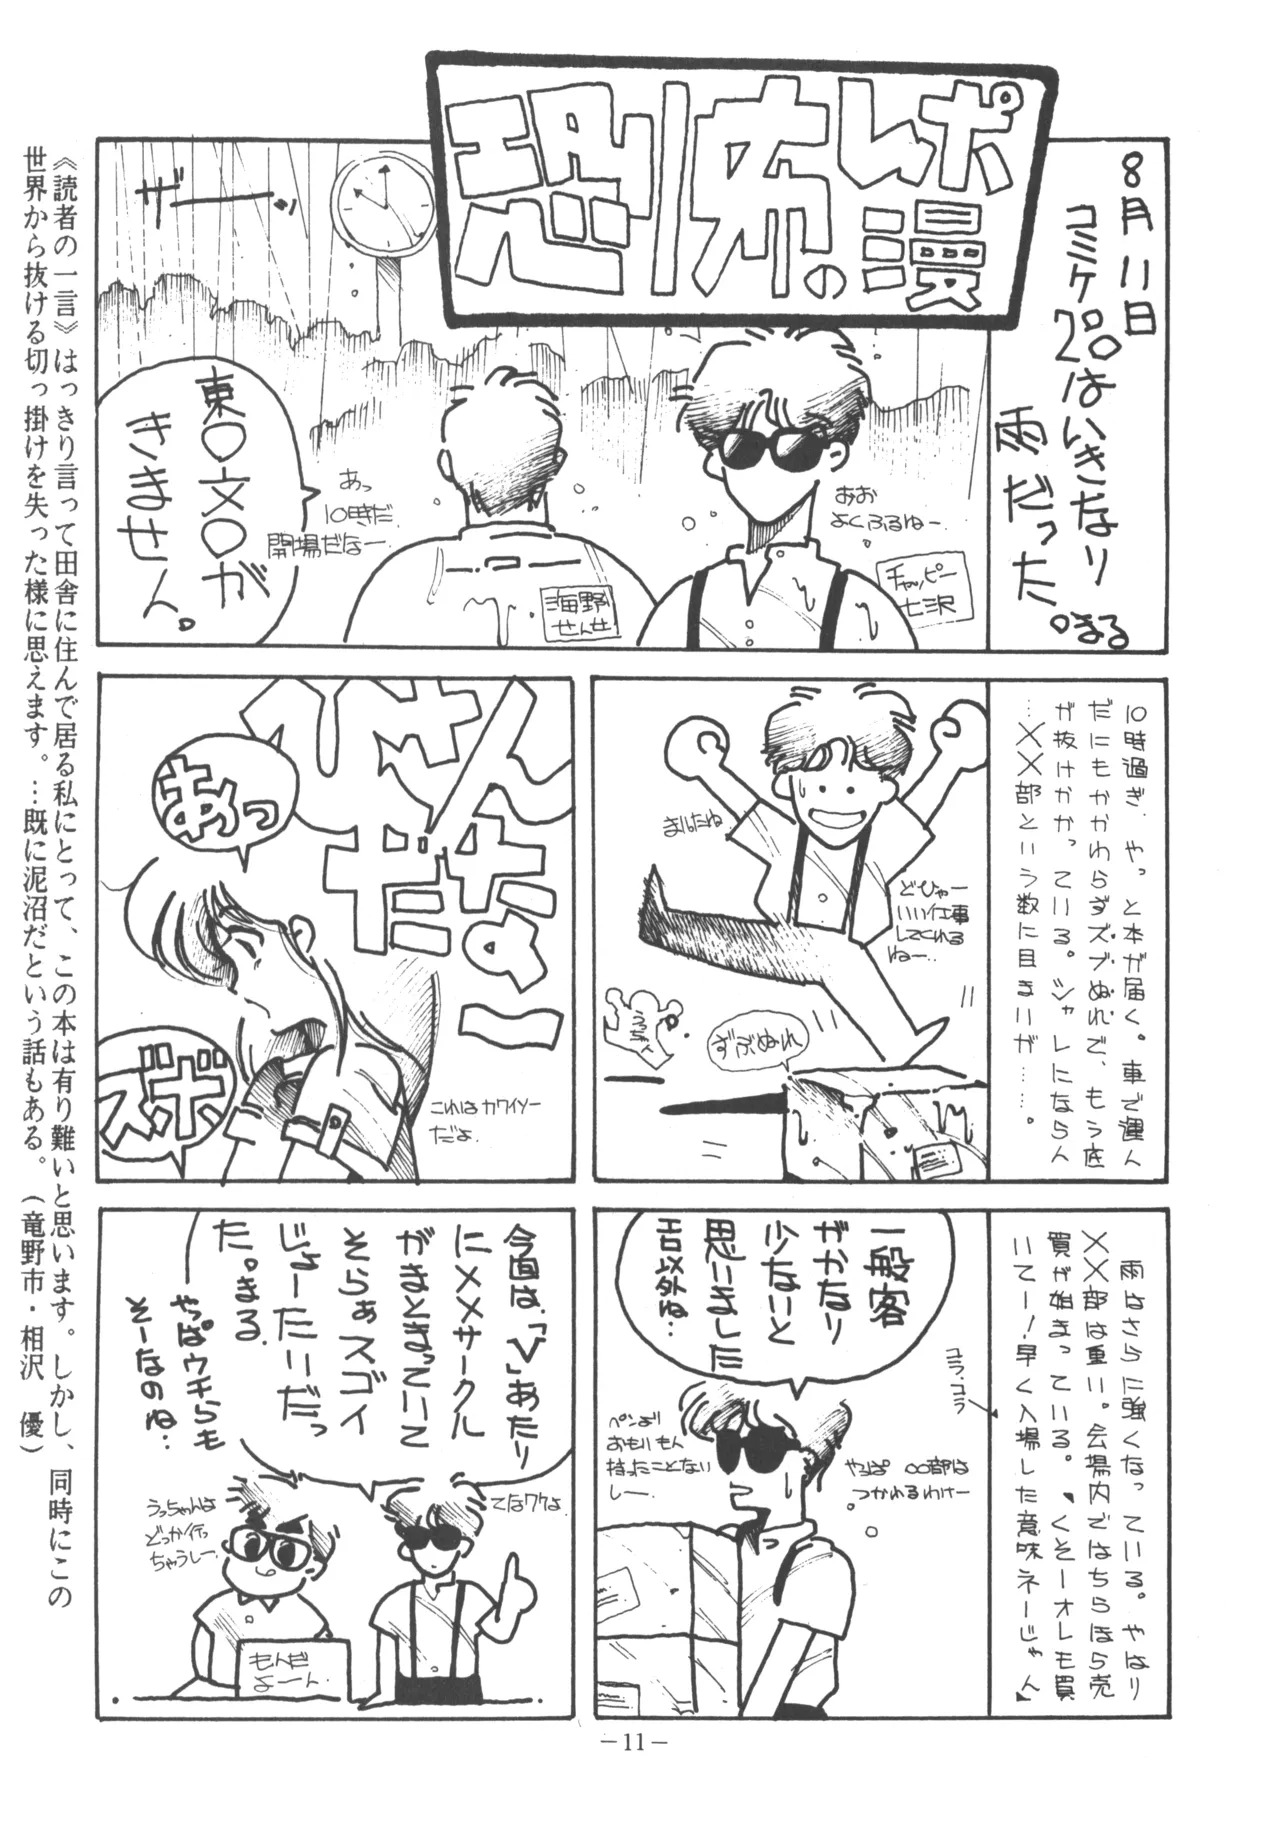 恐怖の
レポ漫
8月11日
コミケ20はいきなり
雨だった。まる
ザーーッ
おお
よくふるねー
チャッピー
七沢
海野
せんせ
あっ
10時だ
開場だなー
東〇文〇が
きません。
10時過ぎ、やっと本が届く。車で運ん
だにもかかわらずズブぬれで、もう底
が抜けかかっている。シャレにならん
…××部という数に目まいが……。
まいったね
どひゃー
いい仕事
してくれる
ねー..
ずぶぬれ
じょう
だんな
よー
あっ
ズボ
これはカワイソー
だよ.
雨はさらに強くなっている。やはり
××部は重い。会場内ではちらほら売
買が始まっている。〝くそーオレも買
いてー！早く入場した意味ネーじゃん〟
コラ、コラ
一般客
がかなり
少ないと
思いました
エロ以外ね…
ペンより
おもいもん
持ったことない
しー.
やっぱ ○○部は
つかれるわけー
今回は、「V」あたり
に××サークル
がまとまっていて
そらぁスゴイ
じょーたいだっ
た。まる
やっぱウチらも
そーなのね..
てなワケよ
うっちゃんは
どっか行っ
ちゃうしー
もんだ
よーん
《読者の一言》はっきり言って田舎に住んで居る私にとって、この本は有り難いと思います。しかし、同時にこの
世界から抜ける切っ掛けを失った様に思えます。…既に泥沼だという話もある。（竜野市・相沢　優）
－11－